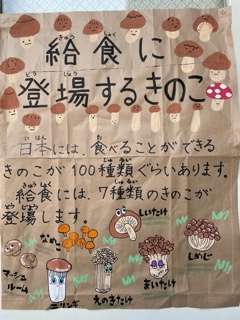 給食に
きゅうしょく
登場するきのこ
とうじょう
日本には、食べることができる
にほん
きのこが100種類ぐらいあります。
しゅるい
給食には、7種類のきのこが
登場します。
しいたけ
なめこ
しめじ
マッシュ
ルーム
エリンギ
えのきたけ
まいたけ